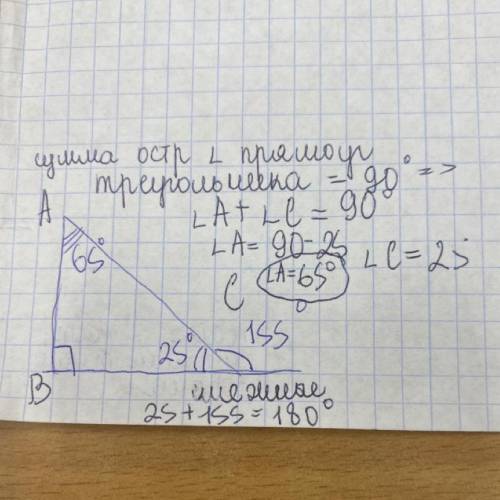 сумма остр ∟ прямоуг
треугольника = 90° =>
∟A + ∟C = 90°
∟A = 90 - 25
∟A = 65°
∟C = 25
A
65°
C
155°
25°
B
смежные
25 + 155 = 180°